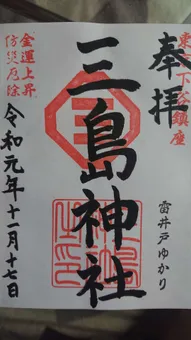 奉拝
下谷鎮座
雷井戸ゆかり
三
三島神社
金運上昇
防災厄除
令和元年十一月十七日